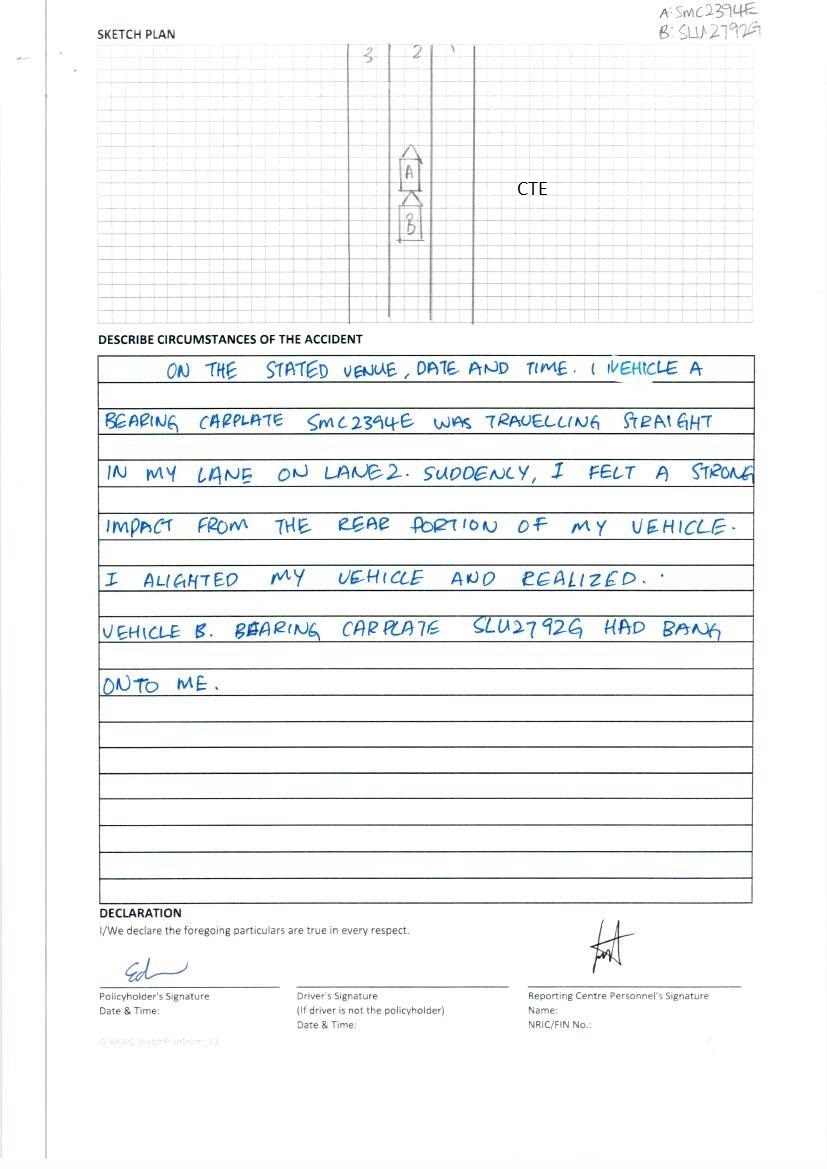 A: SMC2394E
B: SLU2792G
SKETCH PLAN
3 2 1
A
CTE
B
DESCRIBE CIRCUMSTANCES OF THE ACCIDENT
ON THE STATED VENUE, DATE AND TIME. I VEHICLE A
BEARING CARPLATE SMC2394E WAS TRAVELLING STRAIGHT
IN MY LANE ON LANE 2. SUDDENLY, I FELT A STRONG
IMPACT FROM THE REAR PORTION OF MY VEHICLE.
I ALIGHTED MY VEHICLE AND REALIZED.
VEHICLE B. BEARING CARPLATE SLU2792G HAD BANG
ONTO ME.
DECLARATION
I/We declare the foregoing particulars are true in every respect.
Policyholder's Signature
Date & Time:
Driver's Signature
(If driver is not the policyholder)
Date & Time:
Reporting Centre Personnel's Signature
Name:
NRIC/FIN No.: